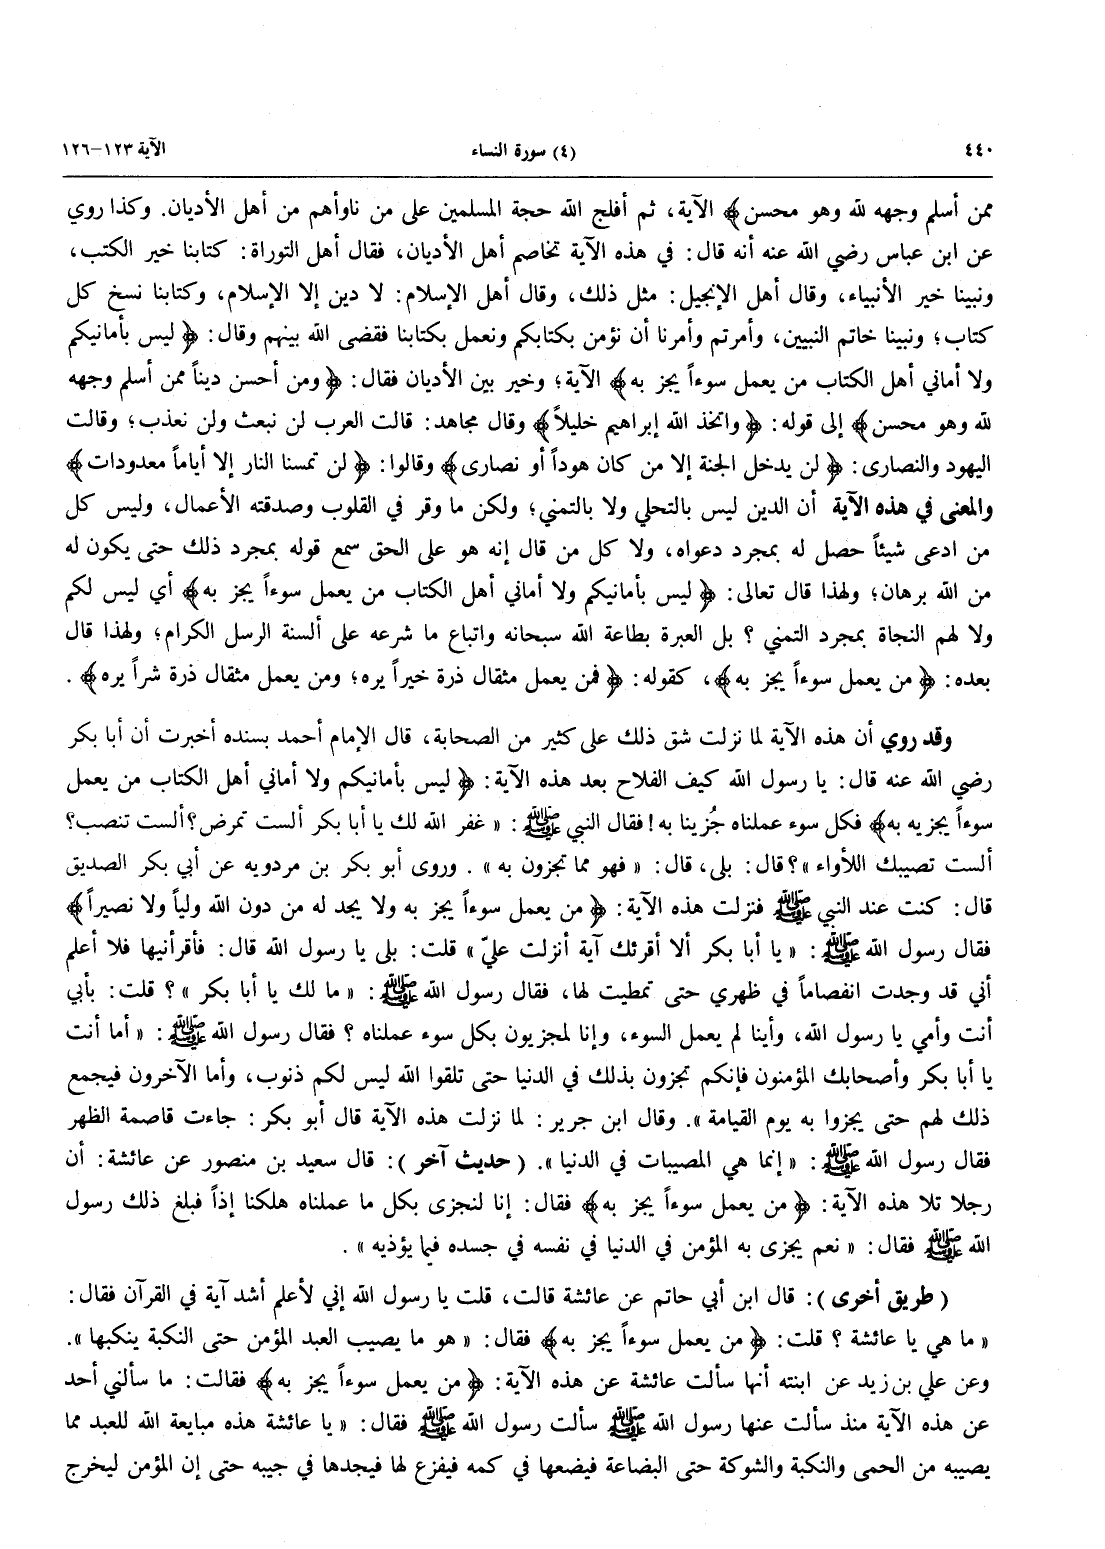 ٤٤٠ (٤) سورة النساء الآية ١٢٣-١٢٦
ممن أسلم وجهه لله وهو محسن﴾ الآية، ثم أفلج الله حجة المسلمين على من ناوأهم من أهل الأديان. وكذا روي
عن ابن عباس رضي الله عنه أنه قال: في هذه الآية تخاصم أهل الأديان، فقال أهل التوراة: كتابنا خير الكتب،
ونبينا خير الأنبياء، وقال أهل الإنجيل: مثل ذلك، وقال أهل الإسلام: لا دين إلا الإسلام، وكتابنا نسخ كل
كتاب؛ ونبينا خاتم النبيين، وأمرتم وأمرنا أن نؤمن بكتابكم ونعمل بكتابنا فقضى الله بينهم وقال: ﴿ليس بأمانيكم
ولا أماني أهل الكتاب من يعمل سوءاً يجز به﴾ الآية؛ وخير بين الأديان فقال: ﴿ومن أحسن ديناً ممن أسلم وجهه
لله وهو محسن﴾ إلى قوله: ﴿واتخذ الله إبراهيم خليلاً﴾ وقال مجاهد: قالت العرب لن نبعث ولن نعذب؛ وقالت
اليهود والنصارى: ﴿لن يدخل الجنة إلا من كان هوداً أو نصارى﴾ وقالوا: ﴿لن تمسنا النار إلا أياماً معدودات﴾
والمعنى في هذه الآية أن الدين ليس بالتحلي ولا بالتمني؛ ولكن ما وقر في القلوب وصدقته الأعمال، وليس كل
من ادعى شيئاً حصل له بمجرد دعواه، ولا كل من قال إنه هو على الحق سمع قوله بمجرد ذلك حتى يكون له
من الله برهان؛ ولهذا قال تعالى: ﴿ليس بأمانيكم ولا أماني أهل الكتاب من يعمل سوءاً يجز به﴾ أي ليس لكم
ولا لهم النجاة بمجرد التمني ؟ بل العبرة بطاعة الله سبحانه واتباع ما شرعه على ألسنة الرسل الكرام؛ ولهذا قال
بعده: ﴿من يعمل سوءاً يجز به﴾، كقوله: ﴿فمن يعمل مثقال ذرة خيراً يره؛ ومن يعمل مثقال ذرة شراً يره﴾ .
وقد روي أن هذه الآية لما نزلت شق ذلك على كثير من الصحابة، قال الإمام أحمد بسنده أخبرت أن أبا بكر
رضي الله عنه قال: يا رسول الله كيف الفلاح بعد هذه الآية: ﴿ليس بأمانيكم ولا أماني أهل الكتاب من يعمل
سوءاً يجزيه به﴾ فكل سوء عملناه جُزينا به! فقال النبي ﷺ : « غفر الله لك يا أبا بكر ألست تمرض؟ ألست تنصب؟
ألست تصيبك اللأواء »؟ قال: بلى، قال: « فهو مما تجزون به » . وروى أبو بكر بن مردويه عن أبي بكر الصديق
قال: كنت عند النبي ﷺ فنزلت هذه الآية: ﴿من يعمل سوءاً يجز به ولا يجد له من دون الله ولياً ولا نصيراً﴾
فقال رسول الله ﷺ : « يا أبا بكر ألا أقرئك آية أنزلت عليّ » قلت: بلى يا رسول الله قال: فأقرأنيها فلا أعلم
أني قد وجدت انفصاماً في ظهري حتى تمطيت لها، فقال رسول الله ﷺ : « ما لك يا أبا بكر » ؟ قلت: بأبي
أنت وأمي يا رسول الله، وأينا لم يعمل السوء، وإنا لمجزيون بكل سوء عملناه ؟ فقال رسول الله ﷺ : « أما أنت
يا أبا بكر وأصحابك المؤمنون فإنكم تجزون بذلك في الدنيا حتى تلقوا الله ليس لكم ذنوب، وأما الآخرون فيجمع
ذلك لهم حتى يجزوا به يوم القيامة ». وقال ابن جرير: لما نزلت هذه الآية قال أبو بكر: جاءت قاصمة الظهر
فقال رسول الله ﷺ : « إنما هي المصيبات في الدنيا ». ( حديث آخر ): قال سعيد بن منصور عن عائشة: أن
رجلا تلا هذه الآية: ﴿من يعمل سوءاً يجز به﴾ فقال: إنا لنجزى بكل ما عملناه هلكنا إذاً فبلغ ذلك رسول
الله ﷺ فقال: « نعم يجزى به المؤمن في الدنيا في نفسه في جسده فيما يؤذيه » .
( طريق أخرى ): قال ابن أبي حاتم عن عائشة قالت، قلت يا رسول الله إني لأعلم أشد آية في القرآن فقال:
« ما هي يا عائشة ؟ قلت: ﴿من يعمل سوءاً يجز به﴾ فقال: « هو ما يصيب العبد المؤمن حتى النكبة ينكبها ».
وعن علي بن زيد عن ابنته أنها سألت عائشة عن هذه الآية: ﴿من يعمل سوءاً يجز به﴾ فقالت: ما سألني أحد
عن هذه الآية منذ سألت عنها رسول الله ﷺ سألت رسول الله ﷺ فقال: « يا عائشة هذه مبايعة الله للعبد مما
يصيبه من الحمى والنكبة والشوكة حتى البضاعة فيضعها في كمه فيفزع لها فيجدها في جيبه حتى إن المؤمن ليخرج